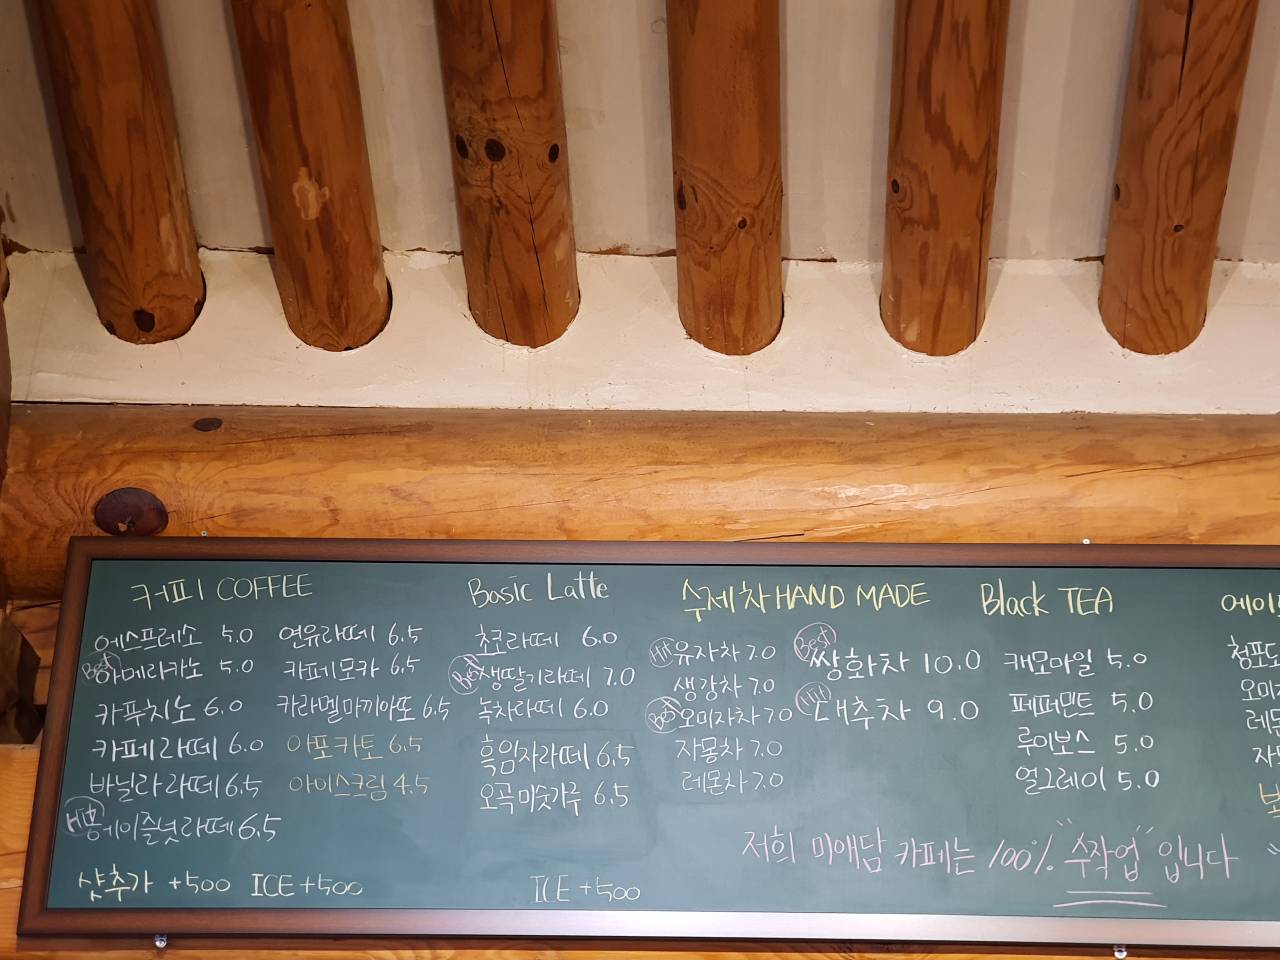 커피 COFFEE
에스프레소 5.0
Best 아메리카노 5.0
카푸치노 6.0
카페라떼 6.0
바닐라라떼 6.5
헤이즐넛라떼 6.5
샷추가 +500 ICE +500
연유라떼 6.5
카페모카 6.5
카라멜마끼아또 6.5
아포카토 6.5
아이스크림 4.5
Basic Latte
초코라떼 6.0
Best 생딸기라떼 7.0
녹차라떼 6.0
흑임자라떼 6.5
오곡미숫가루 6.5
ICE +500
수제차 HAND MADE
Hit 유자차 7.0
생강차 7.0
Best 오미자차 7.0
자몽차 7.0
레몬차 7.0
Best 쌍화차 10.0
Hit 대추차 9.0
Black TEA
캐모마일 5.0
페퍼민트 5.0
루이보스 5.0
얼그레이 5.0
저희 미애담 카페는 100% "수작업" 입니다
에이
청포도
오미
레몬